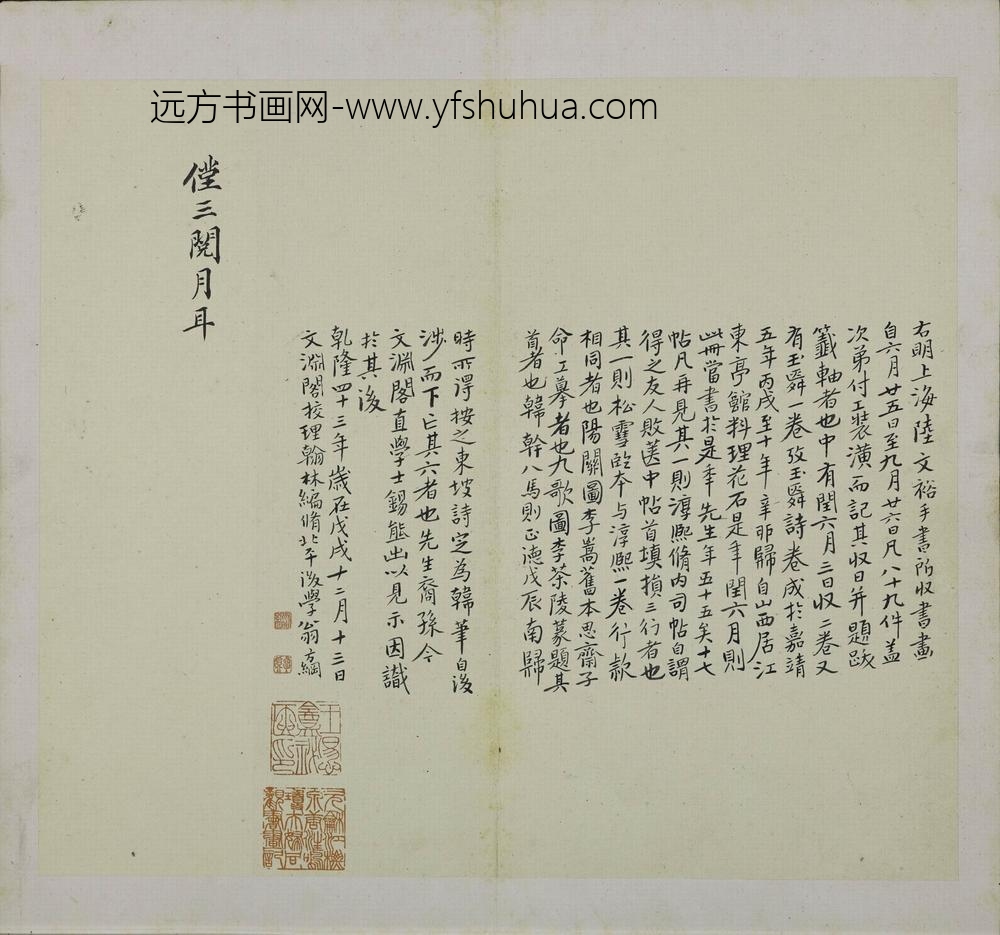 远方书画网-www.yfshuhua.com
右明上海陸文裕手書所收書畫
自六月廿五日至九月廿六日凡八十九件盖
次弟付工裝潢而記其收日并題跋
籤軸者也中有閏六月三日収二卷又
有玉舜一卷攷玉舜詩卷成於嘉靖
五年丙戌至十年辛卯歸自山西居江
東亭館料理花石是年閏六月則
此冊當書於是年先生年五十五矣十七
帖凡再見其一則淳熙脩内司帖自謂
得之友人敗篋中帖首填損三行者也
其一則松雪臨本与淳熙一卷行款
相同者也陽關圖李嵩舊本思齋子
命工摹者也九歌圖李茶陵篆題其
首者也韓幹八馬則正德戊辰南歸
時所得按之東坡詩定為韓筆自後
涉而下亡其六者也先生裔孫今
文淵閣直學士錫熊出以見示因識
於其後
乾隆四十三年歲在戊戌十二月十三日
文淵閣校理翰林編脩北平後學翁方綱
僅三閱月耳